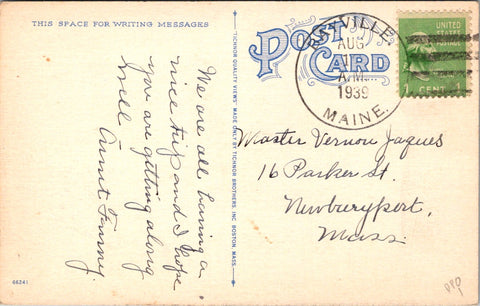 THIS SPACE FOR WRITING MESSAGES
We are all having a
nice trip and I hope
you are getting along
well
Aunt Fanny.
66241
TICHNOR QUALITY VIEWS MADE ONLY BY TICHNOR BROTHERS, INC. BOSTON, MASS.
POST
CARD
AUG
A.M.
1939
MAINE.
UNITED
STATES
POSTAGE
1 CENT 1
Master Vernon Jaques
16 Parker St.
Newburyport,
Mass.